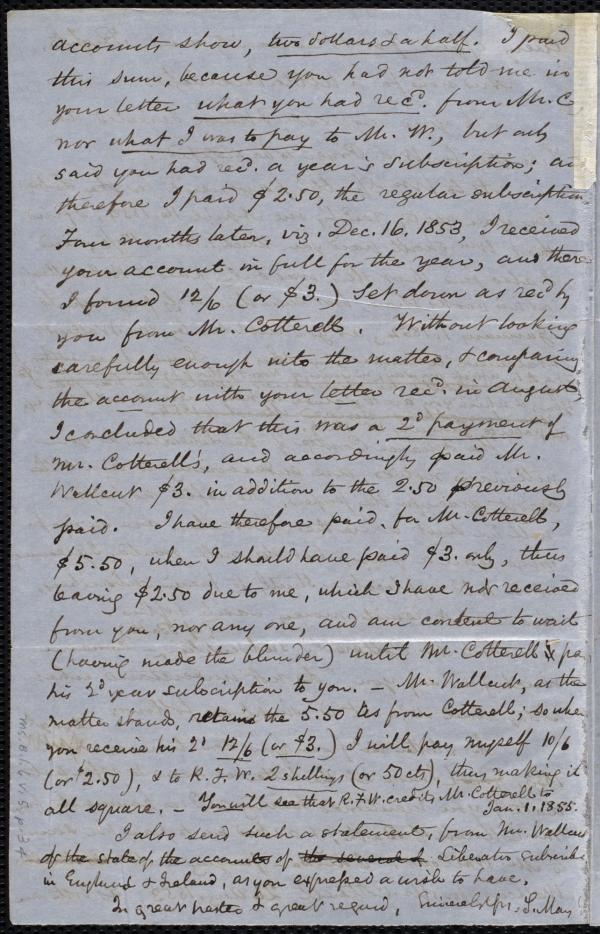 accounts show, two dollars & a half. I paid
this sum, because you had not told me in
your letter what you had recd. from Mr. C.
nor what I was to pay to Mr. W., but only
said you had recd. a year's subscription; an
therefore I paid $2.50, the regular subscription.
Four months later, viz. Dec. 16, 1853, I received
your account in full for the year, and there
I found 12/6 (or $3.) set down as recd by
you from Mr. Cotterell. Without looking
carefully enough into the matter, & comparing
the account with your letter recd. in August,
I concluded that this was a 2d payment of
Mr. Cotterell's, and accordingly paid Mr.
Wallcut $3. in addition to the 2.50 previously
paid. I have therefore paid, for Mr. Cotterell,
$5.50, when I should have paid $3. only, thus
leaving $2.50 due to me, which I have not received
from you, nor any one, and am content to wait
(having made the blunder) until Mr. Cotterell pa
his 2d year subscription to you. – Mr. Wallcut, as the
matter stands, retains the 5.50 as from Cotterell; so when
you receive his 2d 12/6 (or $3.) I will pay myself 10/6
(or $2.50), & to R. F. W. 2 shillings (or 50 cts), thus making it
all square. – You will see that R. F. W. credits Mr. Cotterell to
Jan. 1, 1855.
I also send such a statement, from Mr. Wallcut
of the state of the accounts of the several Liberator subscribe
in England & Ireland, as you expressed a wish to have.
In great haste & great regard, S. May
Ms. B.1.6 v.5 p.34